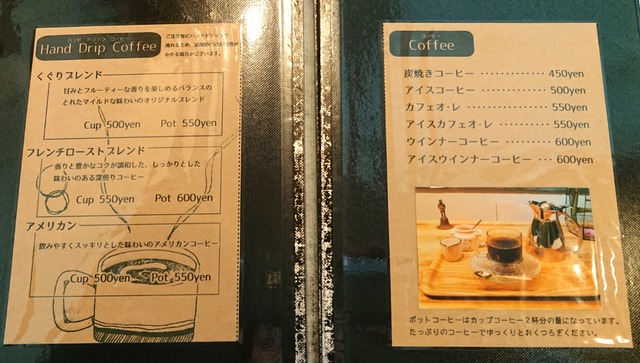 ハンド ドリップ コーヒー
Hand Drip Coffee
くぐりブレンド
甘みとフルーティーな香りを楽しめるバランスの
とれたマイルドな味わいのオリジナルブレンド
Cup 500yen Pot 550yen
フレンチローストブレンド
香りと豊かなコクが調和した、しっかりとした
味わいのある深煎りコーヒー
Cup 550yen Pot 600yen
アメリカン
飲みやすくスッキリとした味わいのアメリカンコーヒー
Cup 500yen Pot 550yen
コーヒー
Coffee
炭焼きコーヒー ············ 450yen
アイスコーヒー ············ 500yen
カフェオ・レ ·············· 550yen
アイスカフェオ・レ ········ 550yen
ウインナーコーヒー ········ 600yen
アイスウインナーコーヒー ··· 600yen
ポットコーヒーはカップコーヒー2杯分の量になっています。
たっぷりのコーヒーでゆっくりとおくつろぎください。